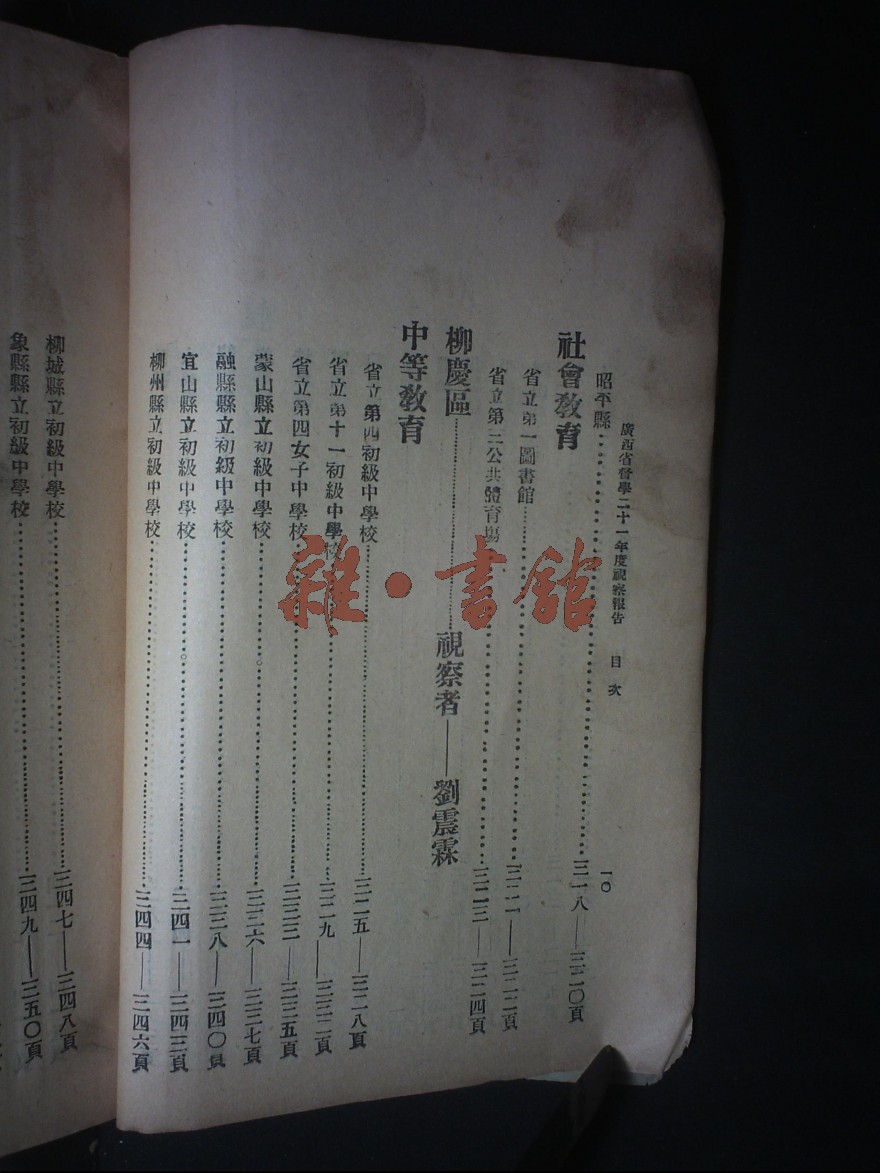 廣西省督學二十一年度視察報告　目次　一〇
昭平縣……三一八——三二〇頁
社會教育
省立第一圖書館……三二一——三二二頁
省立第三公共體育場……三二三——三二四頁
柳慶區……視察者——劉震霖
中等教育
省立第四初級中學校……三二五——三二八頁
省立第十一初級中學校……三二九——三三二頁
省立第四女子中學校……三三三——三三五頁
蒙山縣立初級中學校……三三六——三三七頁
融縣縣立初級中學校……三三八——三四〇頁
宜山縣立初級中學校……三四一——三四三頁
柳州縣立初級中學校……三四四——三四六頁
柳城縣立初級中學校……三四七——三四八頁
象縣縣立初級中學校……三四九——三五〇頁
雜·書館